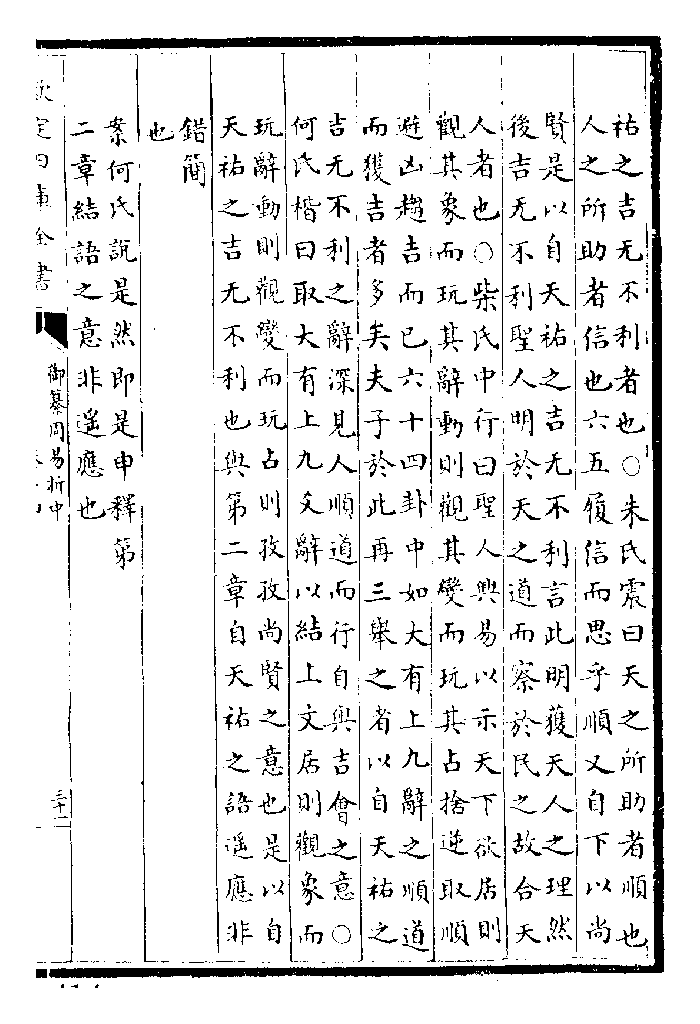 祐之吉无不利者也○朱氏震曰天之所助者順也
人之所助者信也六五履信而思乎順又自下以尚
賢是以自天祐之吉无不利言此明獲天人之理然
後吉无不利聖人明於天之道而察於民之故合天
人者也○柴氏中行曰聖人興易以示天下欲居則
觀其象而玩其辭動則觀其變而玩其占捨逆取順
避凶趨吉而已六十四卦中如大有上九辭之順道
而獲吉者多矣夫子於此再三舉之者以自天祐之
吉无不利之辭深見人順道而行自與吉會之意○
何氏楷曰取大有上九爻辭以結上文居則觀象而
玩辭動則觀變而玩占則孜孜尚賢之意也是以自
天祐之吉无不利也與第二章自天祐之語遥應非
錯簡
也
案何氏說是然即是申釋第
二章結語之意非遥應也
欽定四庫全書
御纂周易折中